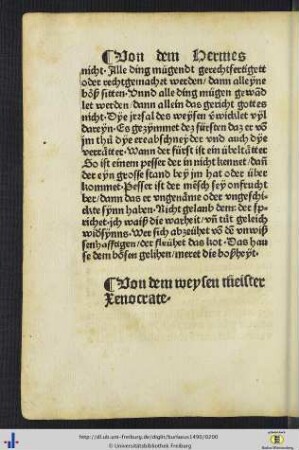 ¶Von dem Hermes
nicht. Alle ding mügendt gerechtfertigett
oder rechtgemachet werden/ dann alleyne
böß sitten. Unnd alle ding mügen gewād
let werden/ dann allein das gericht gottes
nicht. Dye jrsal des weysen
dareyn. Es gezymmet dez fürsten daz er vō
jm thů dye eerabschneyder vnd auch dye
verrätter. Wann der fürst ist ein übeltätter
So ist einem pesser der in nicht kennet/ dañ
der eyn grosse stand bey jm hat oder über
kommet. Pesser ist der mēsch sey onfrucht
ber/ dann das er vngenāme oder vngeschi
ckte synn haben. Nicht gelaub dem: der sp
richet. ich waiß die warheit/ vñ tůt geleich
widsynns. Wer sich abzeühet vō dē vnwiß
senhafftigen/ der fleühet das kot. Das hau
se dem bösen gelihen/ meret die boßheyt.
¶Von dem weysen meister
Xenocrate.
http://dl.ub.uni-freiburg.de/diglit/burlaeus1490/0200
© Universitätsbibliothek Freiburg